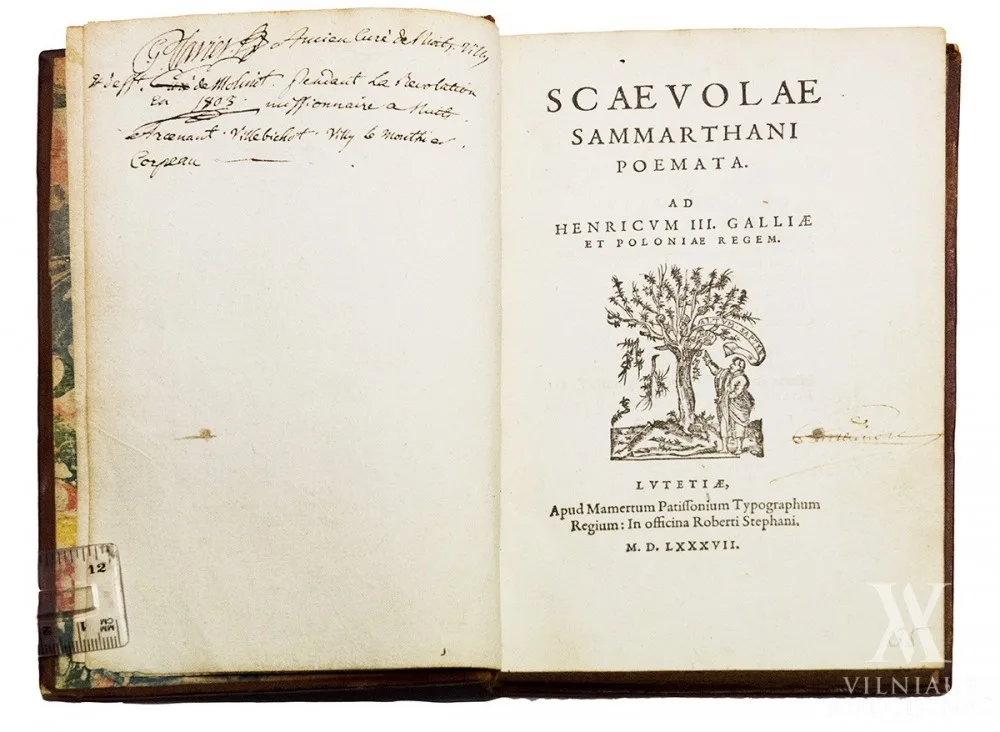 Ancien Curé de
de Molinot. pendant La Revolution
En 1803 missionnaire a Nuits.
Villebichot. Villy le Mouthier
Corpeau
SCAEVOLAE
SAMMARTHANI
POEMATA.
AD
HENRICVM III. GALLIÆ
ET POLONIAE REGEM.
LVTETIÆ,
Apud Mamertum Patissonium Typographum
Regium: In officina Roberti Stephani.
M. D. LXXXVII.
12
1
2
MM
CM
VILNIAUS